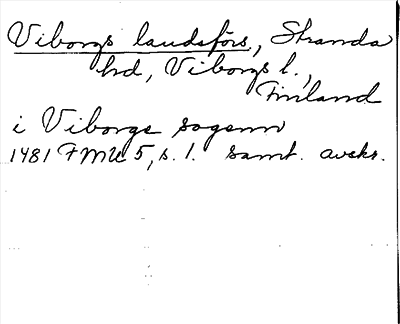 Viborgs landsförs., Stranda
hd, Viborgs l.,
Finland
i Viborgs sogenn
1481 FMU 5, s. 1. samt. avskr.